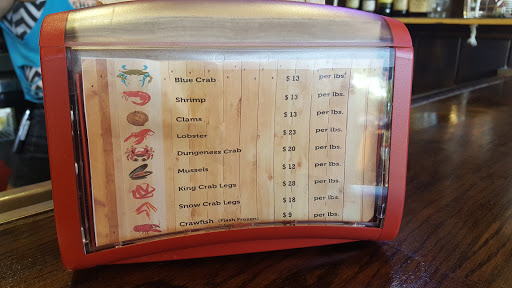 Blue Crab $ 13 per lbs.
Shrimp $ 13 per lbs.
Clams $ 13 per lbs.
Lobster $ 23 per lbs.
Dungeness Crab $ 20 per lbs.
Mussels $ 13 per lbs.
King Crab Legs $ 28 per lbs.
Snow Crab Legs $ 18 per lbs.
Crawfish (Flash Frozen) $ 9 per lbs.